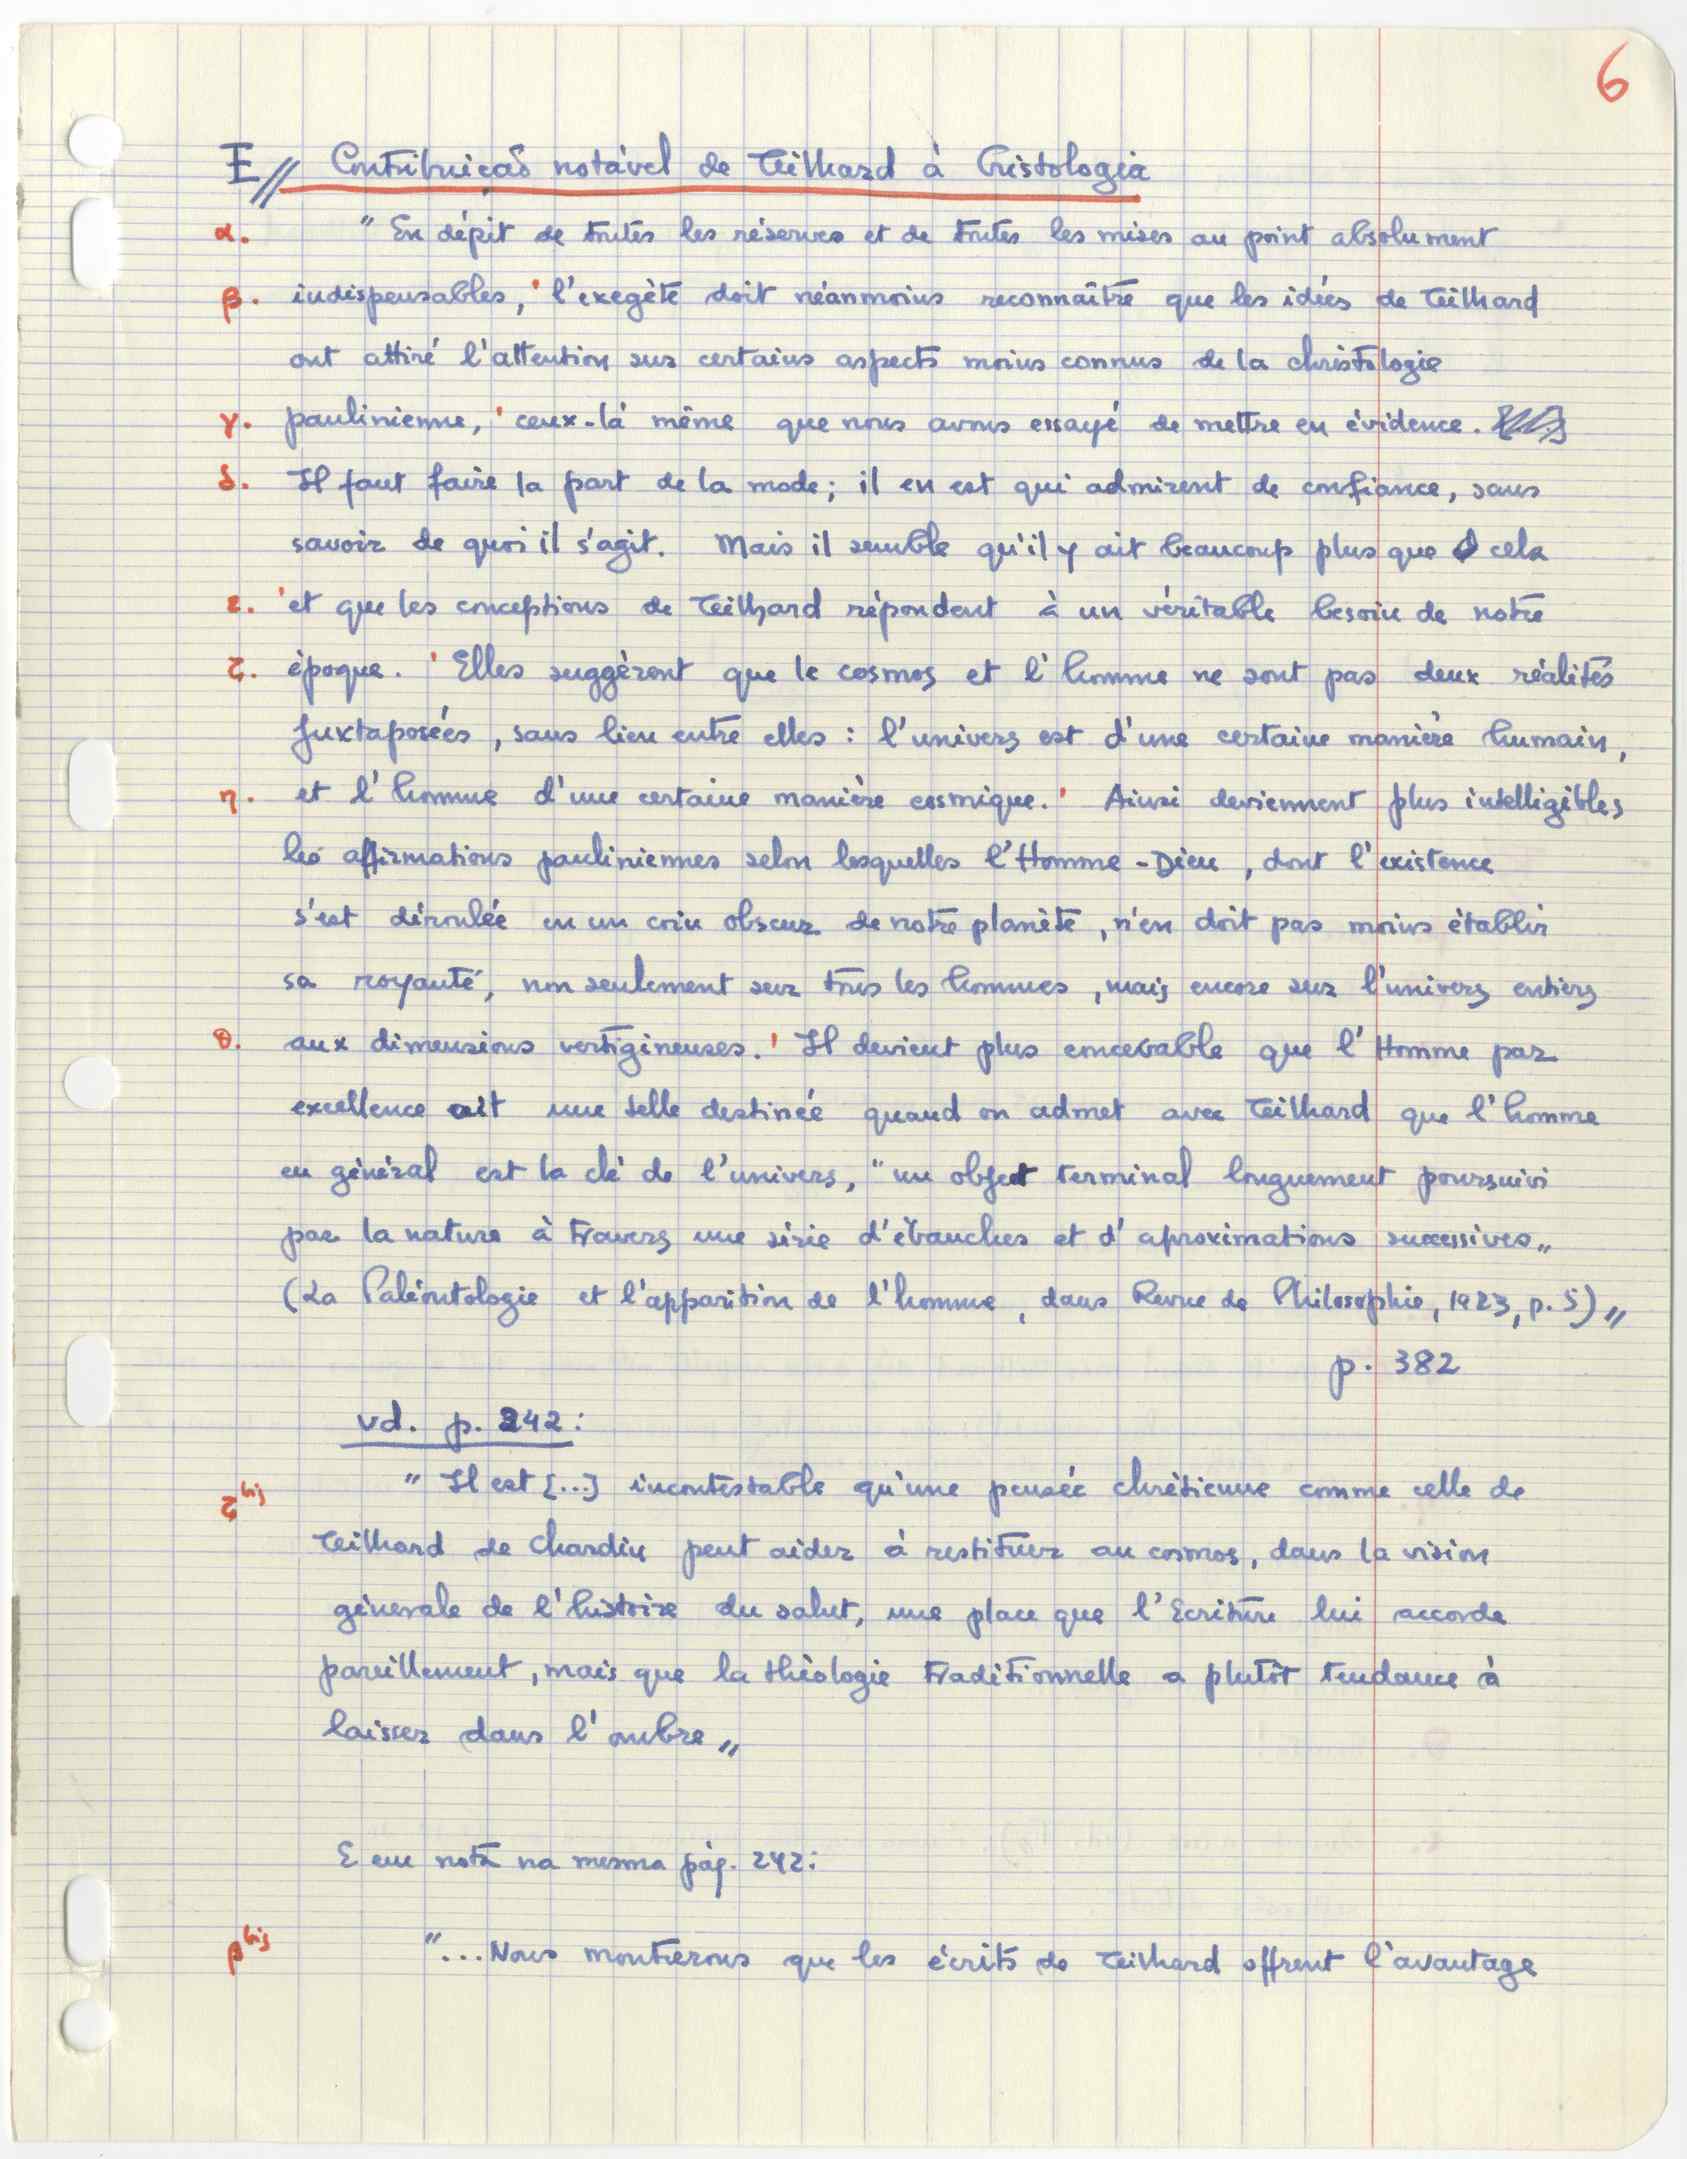 6
E// Contribuição notável de Teilhard à Cristologia
α. " En dépit de toutes les réserves et de toutes les mises au point absolument
β. indispensables, ' l'exegète doit néanmoins reconnaître que les idées de Teilhard
ont attiré l'attention sur certains aspects moins connus de la christologie
γ. paulinienne, ' ceux-là même que nous avons essayé de mettre en évidence.
δ. Il faut faire la part de la mode ; il en est qui admirent de confiance, sans
savoir de quoi il s'agit. Mais il semble qu'il y ait beaucoup plus que cela
ε. ' et que les conceptions de Teilhard répondent à un véritable besoin de notre
ζ. époque. ' Elles suggèrent que le cosmos et l'homme ne sont pas deux réalités
juxtaposées, sans lien entre elles : l'univers est d'une certaine manière humain,
η. et l'homme d'une certaine manière cosmique. ' Ainsi deviennent plus intelligibles
les affirmations pauliniennes selon lesquelles l'Homme-Dieu, dont l'existence
s'est déroulée en un coin obscur de notre planète, n'en doit pas moins établir
sa royauté, non seulement sur tous les hommes, mais encore sur l'univers entiers
θ. aux dimensions vertigineuses. ' Il devient plus concevable que l'Homme par
excellence ait une telle destinée quand on admet avec Teilhard que l'homme
en général est la clé de l'univers, " un objet terminal longuement poursuivi
par la nature à travers une série d'ébauches et d'aproximations successives„
(La Paléontologie et l'apparition de l'homme, dans Revue de Philosophie, 1923, p. 5) „
p. 382
vd. p. 242 :
ζ bis " Il est [...] incontestable qu'une pensée chrétienne comme celle de
Teilhard de Chardin peut aider à restituer au cosmos, dans la vision
génerale de l'histoire du salut, une place que l'Ecriture lui accorde
pareillement, mais que la théologie traditionnelle a plutôt tendance à
laisser dans l'ombre „
E em nota na mesma pág. 242 :
β bis "... Nous montrerons que les écrits de Teilhard offrent l'avantage